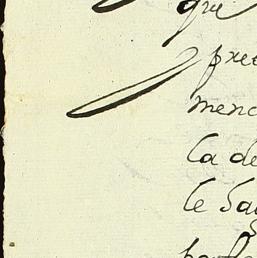 que
pre
menc
la de
le Sa